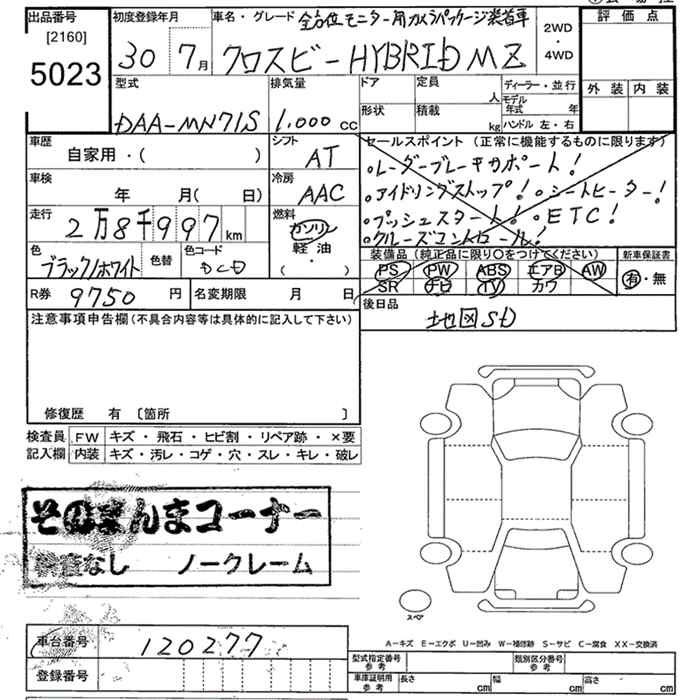 出品番号
[2160]
5023
初度登録年月
30 7月
車名・グレード 全方位モニター用カメラパッケージ装着車
クロスビー HYBRID MZ
2WD
・
4WD
評価点
外装 内装
型式
DAA-MN71S
排気量
1,000 cc
ドア 定員
人
形状 積載
kg
ディーラー・並行
モデル年式 年
ハンドル 左・右
車歴
自家用・( )
シフト
AT
車検
年 月( 日)
冷房
AAC
走行
2万8千997km
燃料
ガソリン
軽油
・( )
色
ブラック/ホワイト
色替
色コード
DCD
R券 9750 円
名変期限 月 日
セールスポイント(正常に機能するものに限ります)
・レーダーブレーキサポート!
・アイドリングストップ!・シートヒーター!
・プッシュスタート!・ETC!
・クルーズコントロール!
装備品(純正品に限り○をつけてください)
PS PW ABS エアB AW
SR ナビ TV カワ
新車保証書
有・無
後日品
地図SD
注意事項申告欄(不具合内容等は具体的に記入して下さい)
修復歴 有 〔箇所 〕
検査員記入欄
FW キズ・飛石・ヒビ割・リペア跡・×要
内装 キズ・汚レ・コゲ・穴・スレ・キレ・破レ
そのまんまコーナー
検査なし ノークレーム
スペア
車台番号 120277
登録番号
A-キズ E-エクボ U-凹み W-補修跡 S-サビ C-腐食 XX-交換済
型式指定番号 参考
類別区分番号 参考
車庫証明用 参考
長さ cm 幅 cm 高さ cm